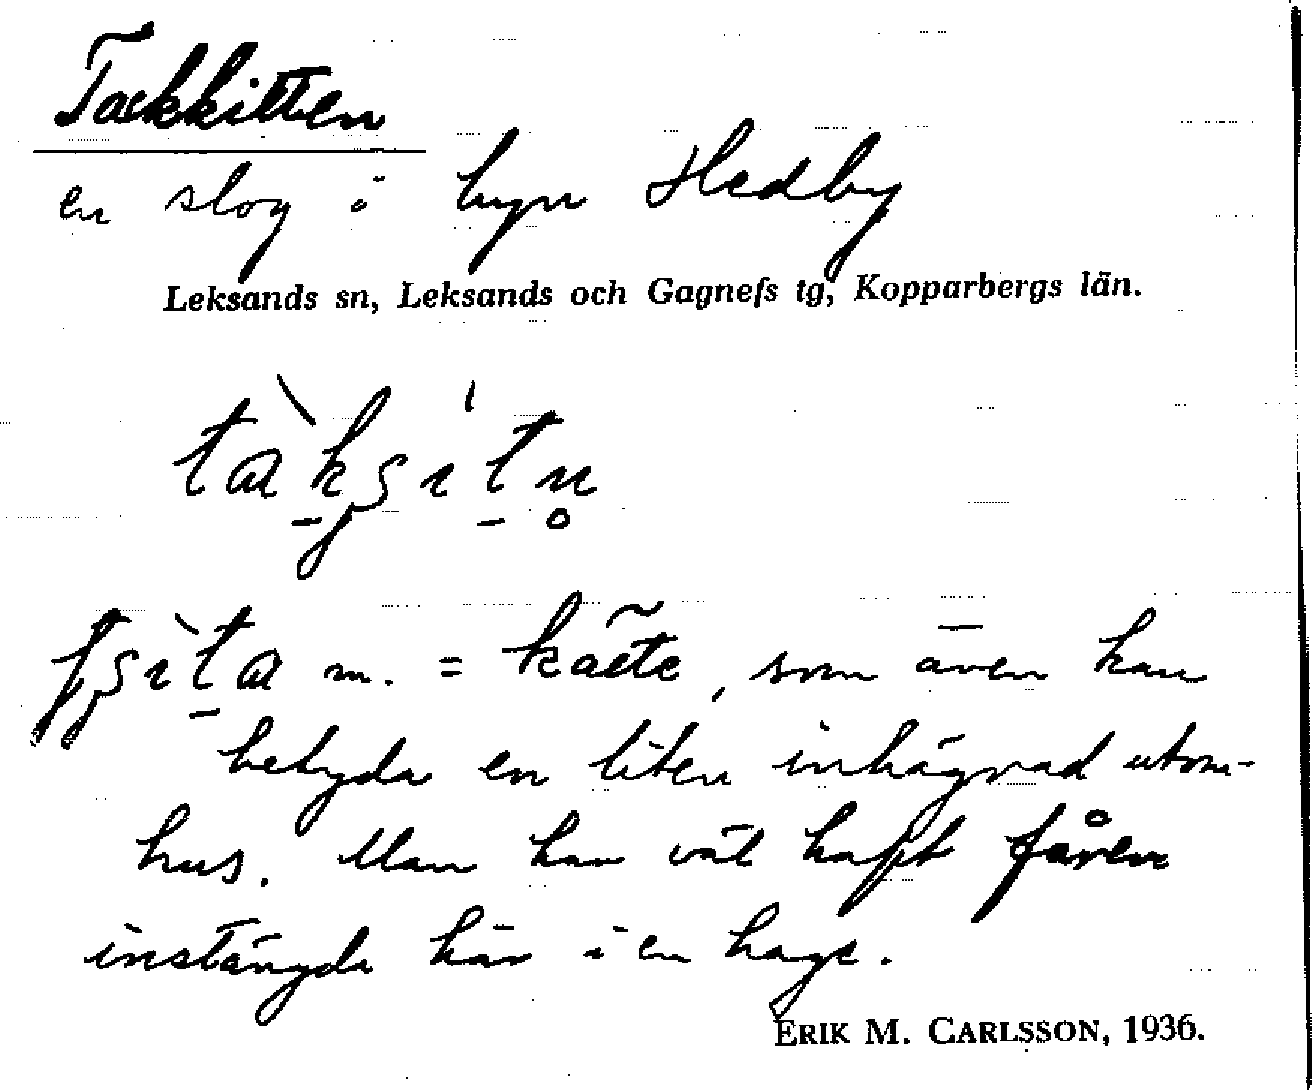 Tackkitten
en slog i byn Hedby
Leksands sn, Leksands och Gagnefs tg, Kopparbergs län.
m. = kätte, som även kan
betyda en liten inhägnad utom-
hus. Man har väl haft fåren
instängda här i en hage.
ERIK M. CARLSSON, 1936.